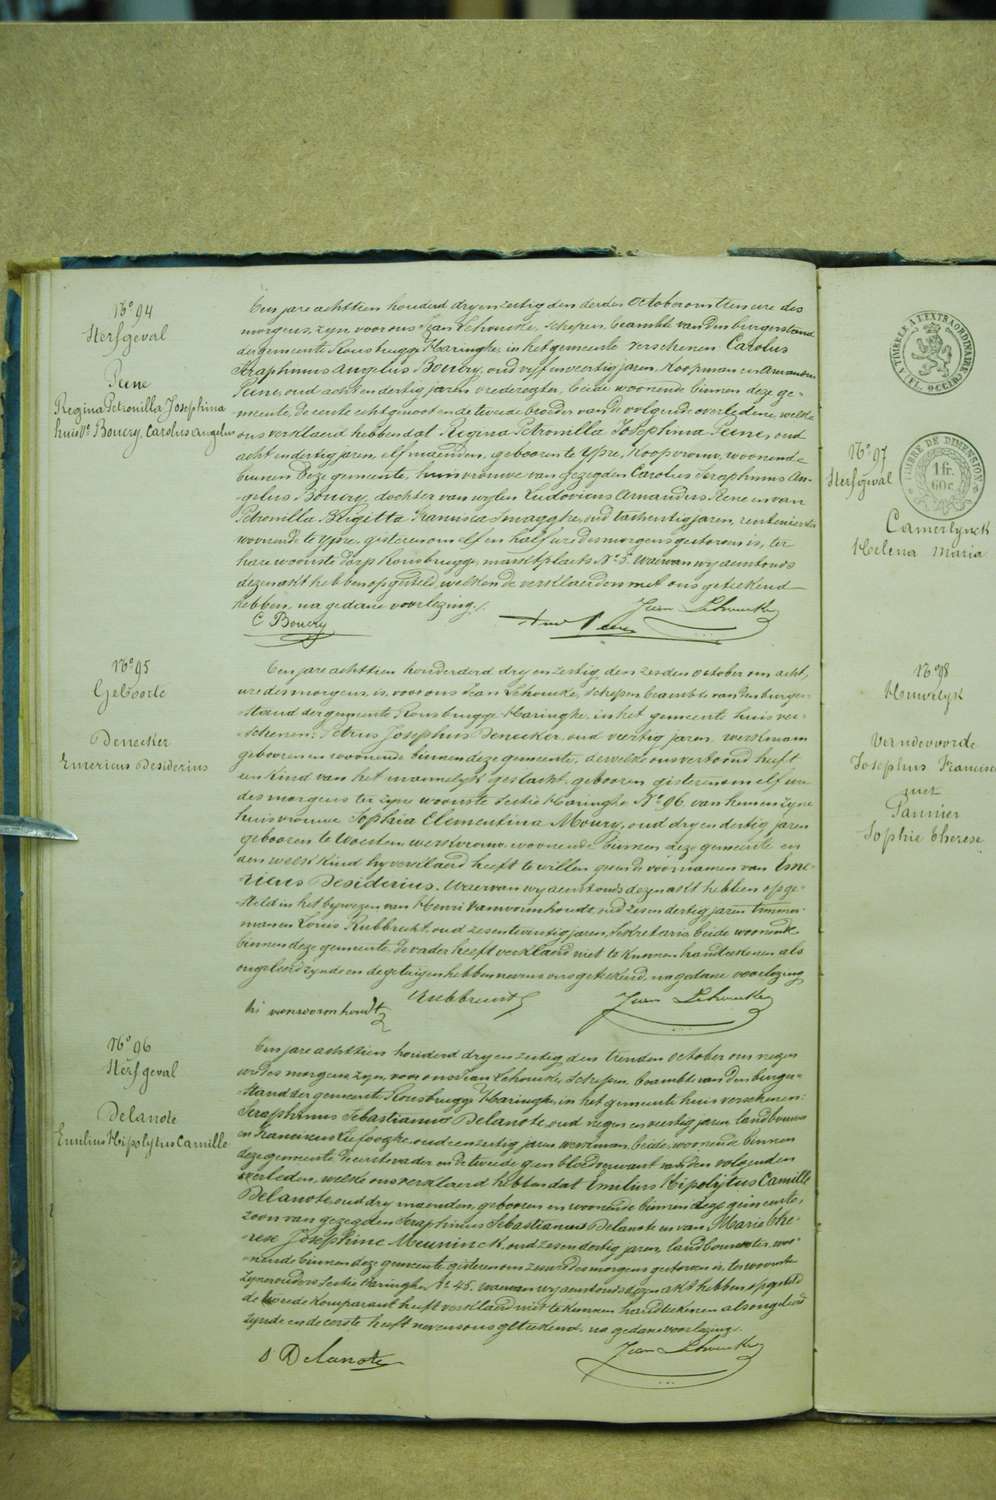 No 94
Sterfgeval
Peene
Regina Petronilla Josephina
huisv. Bouery, Carolus Angelus
Een jare achttien honderd dry en zestig den derden October om tien ure des
morgens, zyn voor ons Jean Lehoucke, schepen, beambte van den burgerstand
der gemeente Rousbrugge Haringhe, in het gemeente verschenen Carolus
Seraphinus Angelus Bouery, oud vyf en veertig jaren, Koopman en Amandus
Peene, oud acht en dertig jaren vrederegter, beide woonende binnen deze ge-
meente, de eerste echtgenoot en de tweede broeder van de volgende overledene, welke
ons verklaerd hebben dat Regina Petronilla Josephina Peene, oud
acht en dertig jaren, elf maenden, gebooren te Ypre, Koopvrouw, woonende
binnen deze gemeente, huisvrouwe van gezegden Carolus Seraphinus An-
gelus Bouery, dochter van wylen Ludovicus Amandus Peene en van
Petronilla Brigitta Francisca Smagghe, oud tachentig jaren, rentenierster
woonende te Ypre, gisteren om elf en half ure des morgens gestorven is, ter
hare woonste dorp Rousbrugge, marktplaets No 5. Waervan wy aenstonds
dezen akt hebben opgesteld, welken de verklaerders met ons geteekend
hebben, na gedane voorlezing.
C Bouery
Peene
Jean Lehoucke
No 95
Geboorte
Denecker
Emericus Desiderius
Een jare achttien honderderd dry en zestig den zesden October om acht
ure des morgens, is voor ons Jean Lehoucke, schepen beambte van den burger-
stand der gemeente Rousbrugge Haringhe, in het gemeente huis ver-
schenen: Petrus Josephus Denecker, oud veertig jaren, werkman
gebooren en woonende binnen deze gemeente, dewelke ons vertoond heeft
een kind van het mannelyk geslacht, gebooren gisteren om elf ure
des morgens ter zyne woonste Sectie Haringhe No 96. van hem en zyne
huisvrouwe Sophia Clementina Moury, oud dry en dertig jaren
gebooren te Woesten, werkvrouw, woonende binnen deze gemeente en
aen welk kind hy verklaerd heeft te willen geven de voornamen van Eme-
ricus Desiderius. Waervan wy aenstonds dezen akt hebben opge-
steld in het bywezen van Henri Vanwormhoudt, oud zes en dertig jaren timmer-
man en Louis Rubbrecht, oud zes en twintig jaren, Sekretaris, beide woonende
binnen deze gemeente. De vader heeft verklaerd niet te kunnen handteekenen als
ongeleerd zynde en de getuigen hebben nevens ons geteekend, na gedane voorlezing
hri vanwormhoudt
LRubbrecht
Jean Lehoucke
No 96
Sterfgeval
Delanote
Emilius Hipolytus Camille
Een jare achttien honderd dry en zestig, den tienden October om negen
ure des morgens, zyn voor ons Jean Lehoucke, Schepen, beambte van den burger-
stand der gemeente Rousbrugge Haringhe, in het gemeente huis verschenen:
Seraphinus Sebastianus Delanote, oud negen en veertig jaren landbouwer
en Franciscus Liefooghe, oud een en zestig jaren werkman, beide woonende binnen
deze gemeente, de eerste vader en de tweede geen bloedverwant van den volgenden
overleden, welke ons verklaerd hebben dat Emilius Hipolytus Camille
Delanote, oud dry maenden, gebooren en woonende binnen deze gemeente,
zoon van gezegden Seraphinus Sebastianus Delanote en van Marie The-
rese Josephine Meuninck, oud zes en dertig jaren, landbouwster, woo-
nende binnen deze gemeente, gisteren om zes ure des morgens gestorven is, te woonste
zyner ouders Sectie Haringhe No 45. waervan wy aenstonds dezen akt hebben opgesteld
de tweede komparant heeft verklaerd niet te kunnen handteekenen als ongeleerd
zynde en de eerste heeft nevens ons geteekend, na gedane voorlezing.
S Delanote
Jean Lehoucke
TIMBRE A L'EXTRAORDINAIRE
FL. OCCID.
No 97
Sterfgeval
TIMBRE DE DIMENSION
1 fr.
60 c.
Camerlynck
Helena Maria
No 98
Huwelyk
Vandevoorde
Josephus Francise
met
Pannier
Sophie Therese